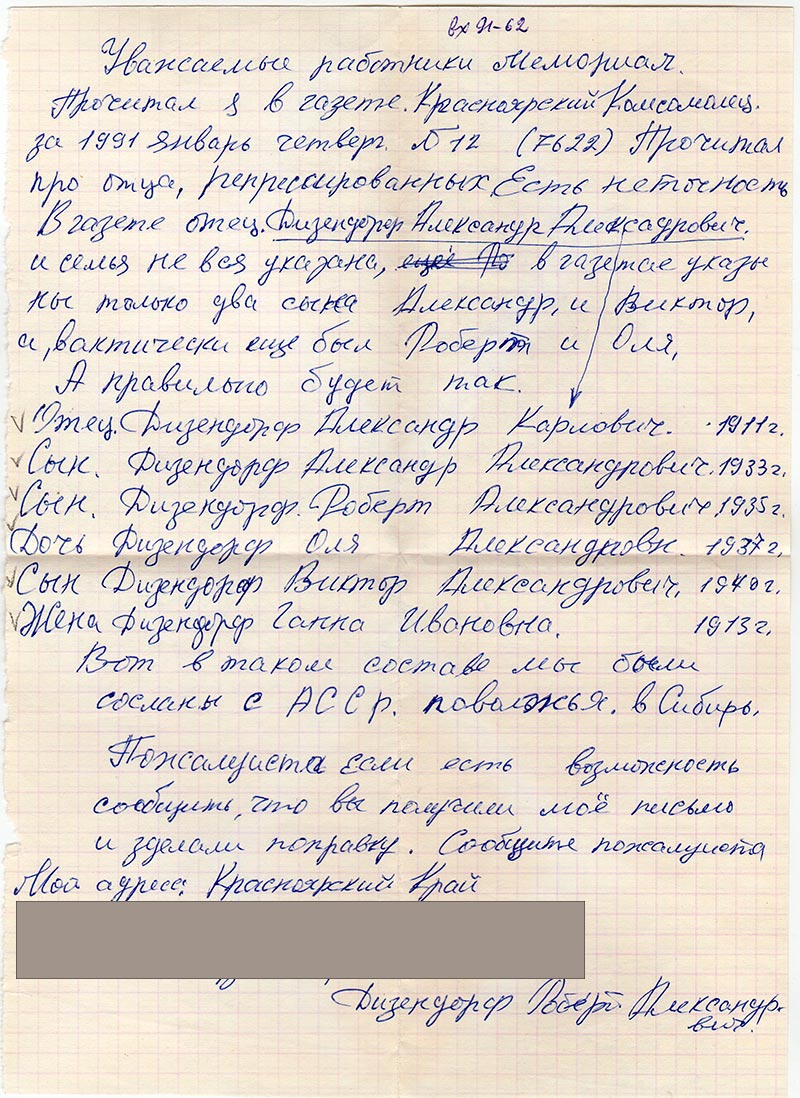 вх Л-62
Уважаемые работники Мемориал.
Прочитал я в газете. Красноярский Комсомолец.
за 1991 январь четверг. N 12 (7622) Прочитал
про отца, репрессированных Есть неточность
В газете отец. Дизендорф Александр Алексадрович.
и семья не вся указана, в газетае указы
ны только два сына Александр, и Виктор,
а, вактически еще был Роберт и Оля,
А правильно будет так.
Отец. Дизендорф Александр Карлович. 1911г.
Сын. Дизендорф Александр Александрович. 1933г.
Сын. Дизендорф. Роберт Александрович 1935г.
Дочь Дизендорф Оля Александровн. 1937г.
Сын Дизендорф Виктор Александрович. 1940г.
Жена Дизендорф Ганна Ивановна. 1913г.
Вот в таком составе мы были
сосланы с АССр. поволжья. в Сибирь.
Пожалуиста если есть возможность
сообщить, что вы получили моё письмо
и зделали поправку. Сообщите пожалуиста
Мой адресс. Красноярский Край
Дизендорф Роберт Александр-
вич.